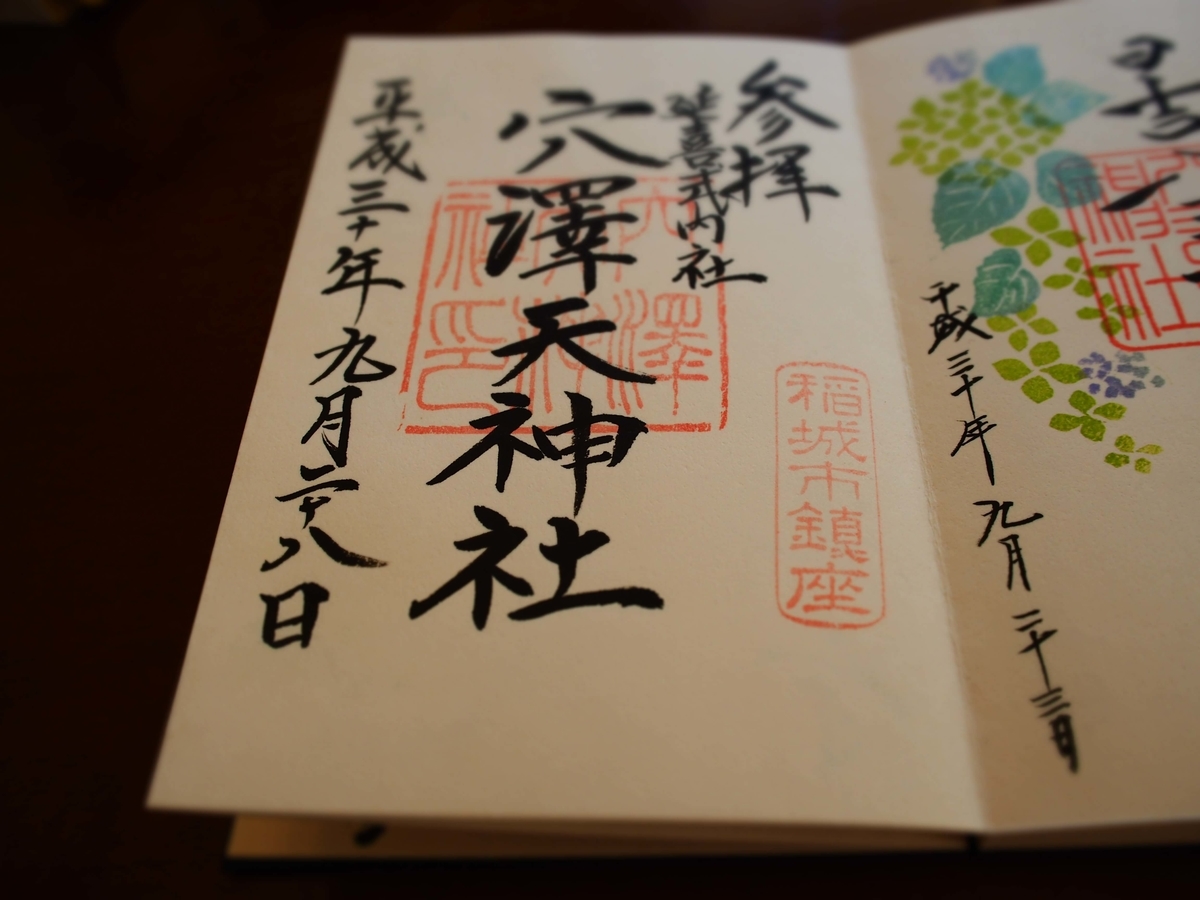 平成三十年 九月 二十三日
参拝
延喜式内社
稲城市鎮座
穴澤天神社
穴澤天神社印
平成三十年九月二十八日